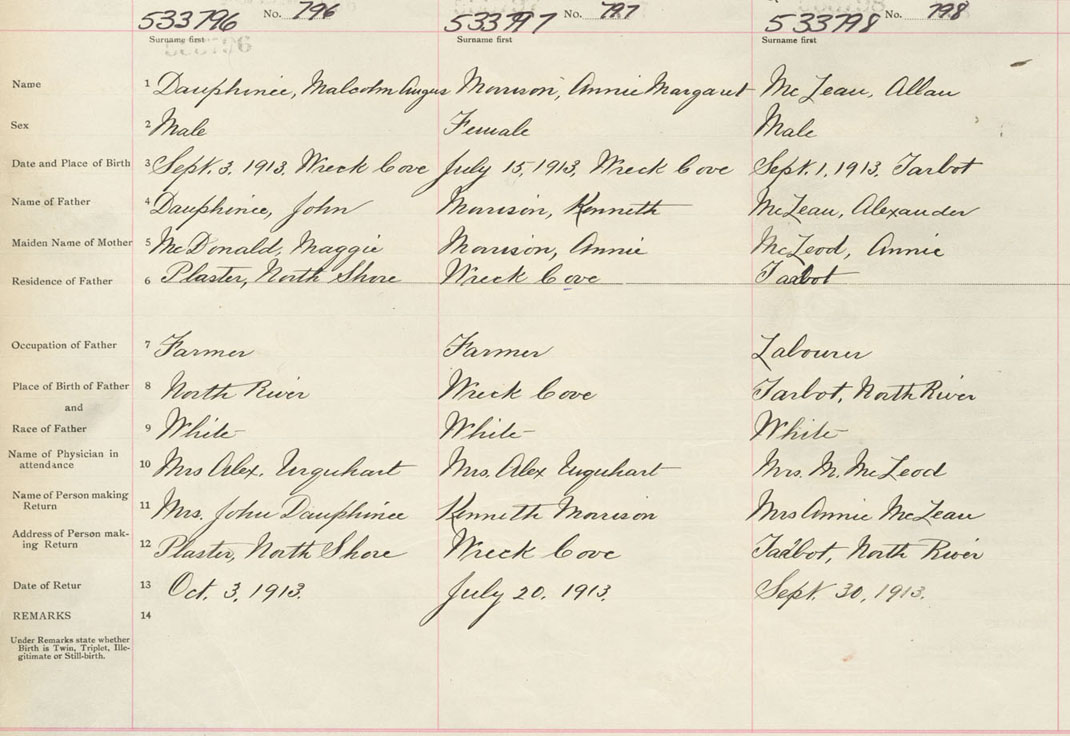 533796 No. 796 533797 No. 797 533798 No. 798
Surname first Surname first Surname first
Name 1 Dauphinee, Malcolm Angus Morrison, Annie Margaret McLean, Allan
Sex 2 Male Female Male
Date and Place of Birth 3 Sept. 3. 1913, Wreck Cove July 15, 1913, Wreck Cove Sept. 1, 1913, Tarbot
Name of Father 4 Dauphinee, John Morrison, Kenneth McLean, Alexander
Maiden Name of Mother 5 McDonald, Maggie Morrison, Annie McLeod, Annie
Residence of Father 6 Plaster, North Shore Wreck Cove Tarbot
Occupation of Father 7 Farmer Farmer Labourer
Place of Birth of Father 8 North River Wreck Cove Tarbot, North River
and
Race of Father 9 White White White
Name of Physician in
attendance 10 Mrs Alex. Urquhart Mrs. Alex Urquhart Mrs. M. McLeod
Name of Person making
Return 11 Mrs. John Dauphinee Kenneth Morrison Mrs Annie McLean
Address of Person mak-
ing Return 12 Plaster, North Shore Wreck Cove Tarbot, North River
Date of Retur 13 Oct. 3, 1913. July 20, 1913. Sept. 30, 1913.
REMARKS 14
Under Remarks state whether
Birth is Twin, Triplet, Ille-
gitimate or Still-birth.